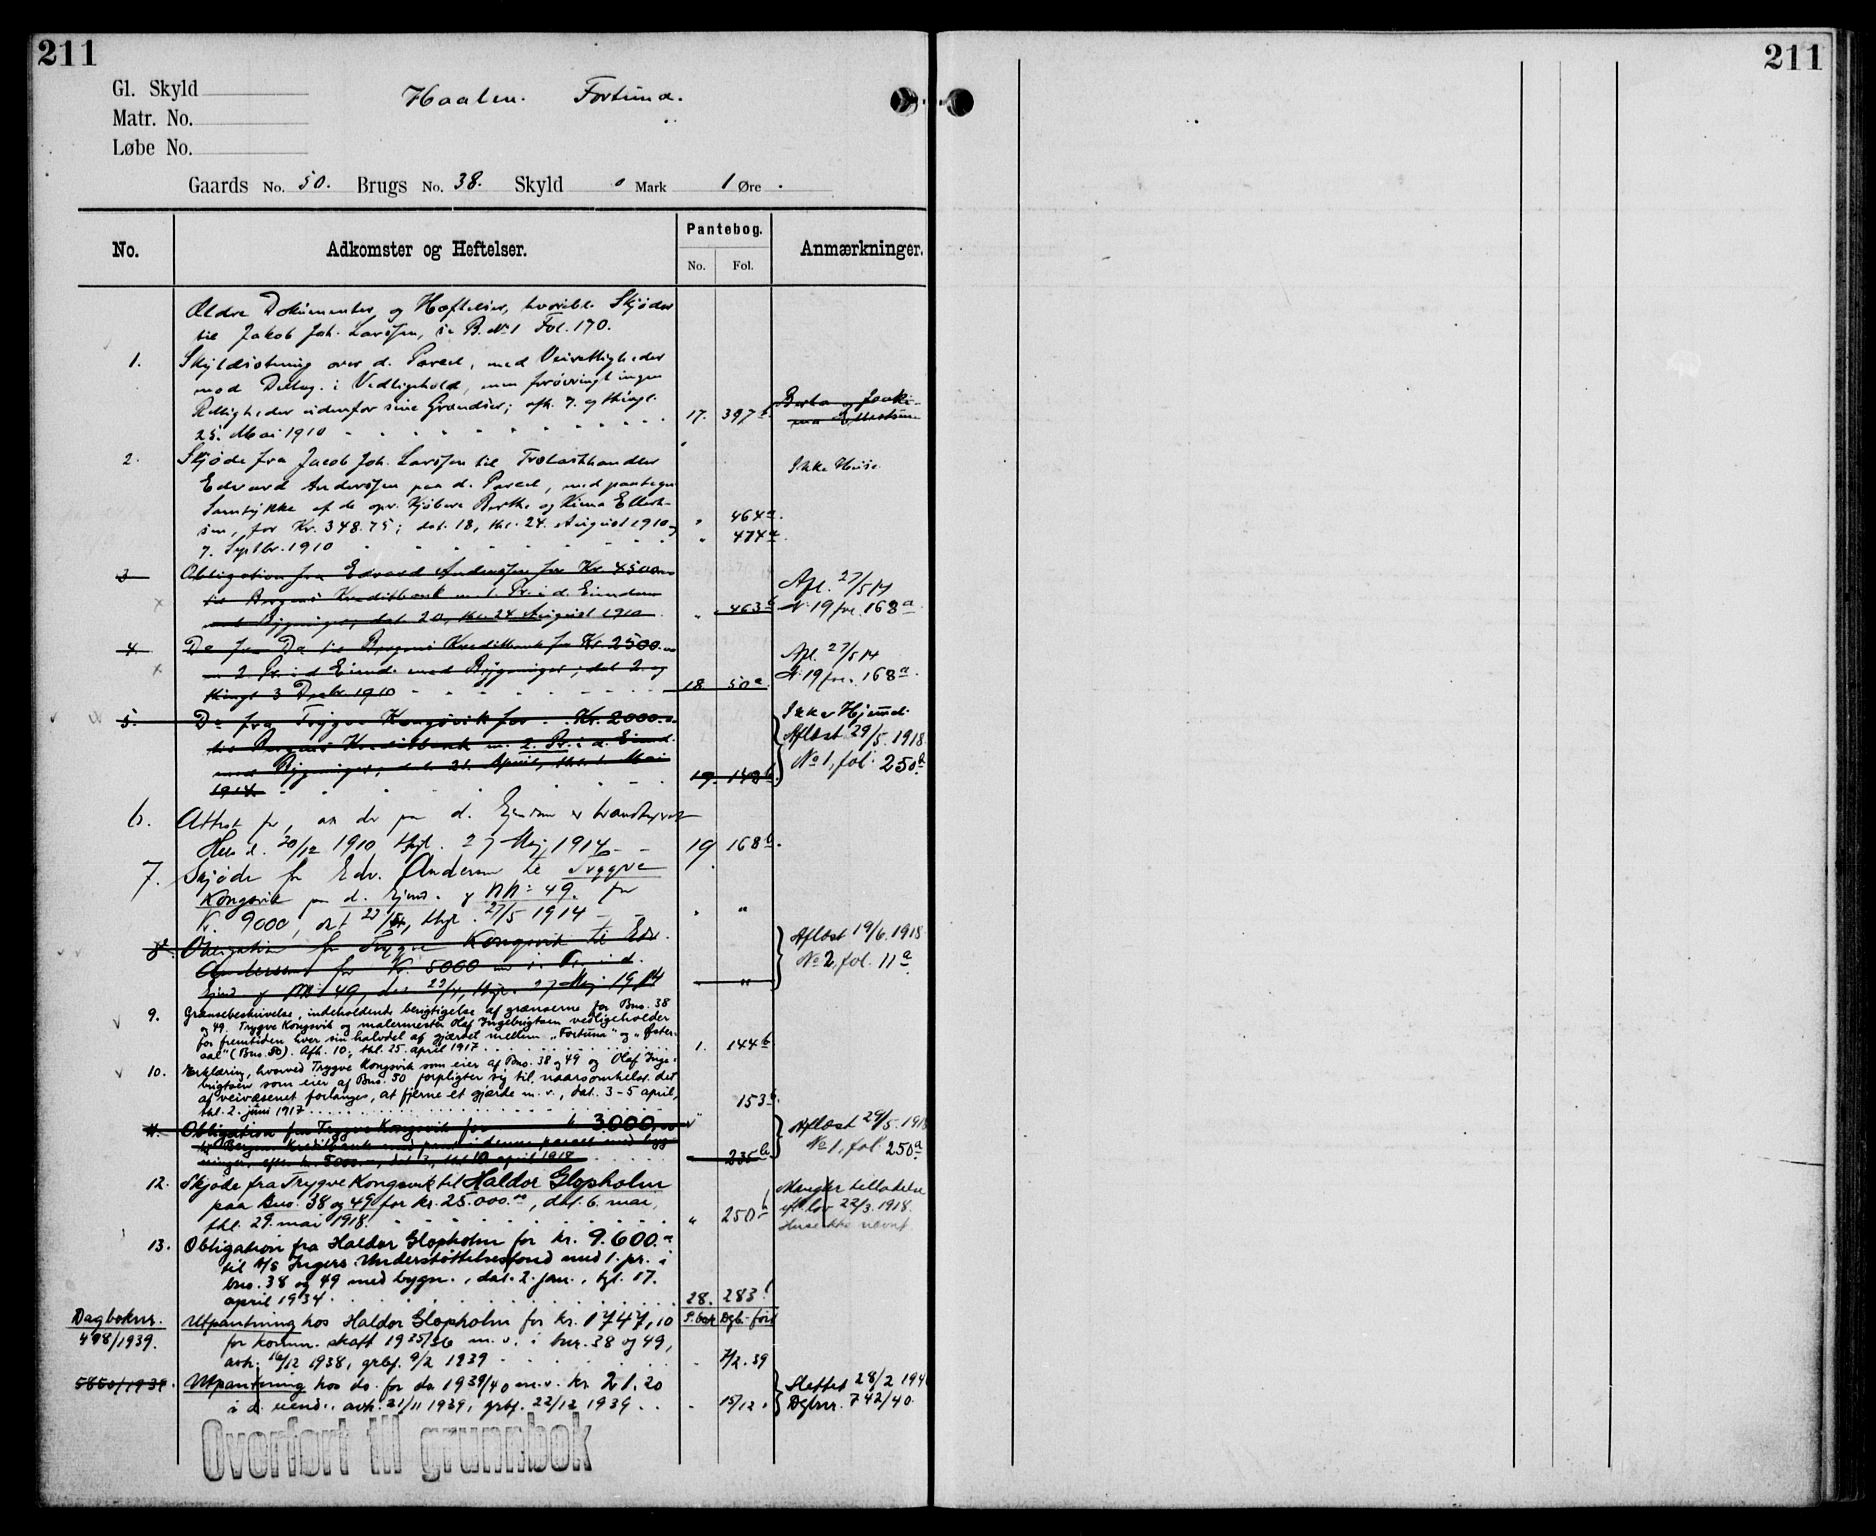 211
211
Gl. Skyld
Matr. No.
Løbe No.
Haalen. Fortuna.
Gaards No. 50. Brugs No. 38. Skyld 0 Mark 1 Øre
No.
Adkomster og Heftelser.
Pantebog.
No. Fol.
Anmærkninger.
Ældre Dokumenter og Hæftelser, Skjøder
til Jakob Joh. Larssen, se B. No 1 Fol. 170.
1. Skyldsætning over d. Parcel, med Veirettigheder
mod Deltag. i Vedligehold, men forøvrigt ingen
Rettigheder udenfor sine Grændser; afh. 7. og thingl.
25. Mai 1910 17. 397b. Berta og
2. Skjøde fra Jacob Joh. Larssen til Trælasthandler
Ikke Huse
Edvard Anderssen paa d. Parcel, med
Samtykke af de opr. Kjøbere Berthe og Ellert-
sen, for Kr. 348.75; dat. 18, thl. 24. August 1910 og " 464a.
7. Septbr. 1910 " 474a.
3 Obligation fra Edvard Anderssen for Kr. 4500.
til Bergens Kreditbank m. 1. Pr. i d. Eiendom
Afl. 27/5 14
med Bygninger, dat. 20, thl. 24 August 1910 " 463b N. 19 fol. 168a
4. Do fra Do til Bergens Kreditbank for Kr. 2500.
m 2. Pr. i d Eiend. med Bygninger, dat. 2. og
Afl. 27/5 14
thingl. 3 Decbr. 1910 18 50a. N. 19 fol. 168a
5. Do fra Trygve Kongsvik for Kr. 2000.
til Bergens Kreditbank m. 2. Pr. i d. Eiend.
Aflæst 29/5. 1918
med Bygninger, dat. 21. April, thl. 1. Mai
No 1, fol. 250a.
1914. 19. 148b.
6. Attest for, at der paa d. Ejendom er
Hus d. 30/12 1910 thgl. 27 Maj 1914 19 168b.
7. Skjøde fr Edv. Andersen til Trygve
Kongsvik paa d. Ejend. og MN: 49. for
Kr. 9000, dat. thgl. 27/5 1914 " "
8. Obligation fr Trygve Kongsvik til Edv.
Andersen for Kr. 5000 m 1. Pr. i d.
Aflæst 19/6. 1918
No 2, fol. 11a
Ejend og MN: 49, dat. thgl. 27 Maj 1914 "
9. Grænsebeskrivelse, indeholdende berigtigelse af grænserne for Bno. 38
og 49. Trygve Kongsvik og malermester Olaf Ingebrigtsen vedligeholder
for fremtiden hver sin halvdel af gjærdet mellem "Fortuna" og "Øster-
aal" (Bno. 50). Afh. 10, thl. 25. april 1917 1. 144b
10. Erklæring, hvorved Trygve Kongsvik som eier af Bno. 38 og 49 og Olaf Inge-
brigtsen som eier af Bno. 50 forpligter sig til, naarsomhelst det
af veivæsenet forlanges, at fjerne et gjærde m. v., dat. 3-5 april,
thl. 2. juni 1917 " 153b.
11. Obligation fra Trygve Kongsvik for " 3.000,00
til Bergens Kreditbank med pant i denne parcel med byg-
Aflæst 29/5. 1918
No 1, fol. 250a.
ninger, efter kr. 5000.-, dat. 3., thl. 10 april 1918 " 235b.
12. Skjøde fra Trygve Kongsvik til Haldor Glopholm
paa Bno. 38 og 49 for kr. 25.000.00, dat. 6. mai,
Mangler tilladelse
ef. lov 22/3. 1918.
thl. 29. mai 1918. " 250a
Hus ikke nævnt
13. Obligation fra Haldor Glopholm for kr. 9.600.-
til A/S Ingers Understøttelsesfond med 1. pr. i
bno. 38 og 49 med bygn., dat. 2. jan., tgl. 17.
april 1934 28. 283.
Dagboknr.
498/1939. Utpantning hos Haldor Glopholm for kr. 1747,10 P.bok Dgb. ført
for komm. skatt 1935/36 m. v. i bnr. 38 og 49,
avh. 16/12 1938, grbf. 9/2 1939 - 7/2. 39
5850/1939. Utpantning hos do. for do 1939/40 m.v. kr. 21.20
i d. eiend., avh. 21/11 1939, grbf. 22/12 1939 - 15/12.
Slettet 28/2 1940
Dgbnr. 742/40.
Overført til grunnbok